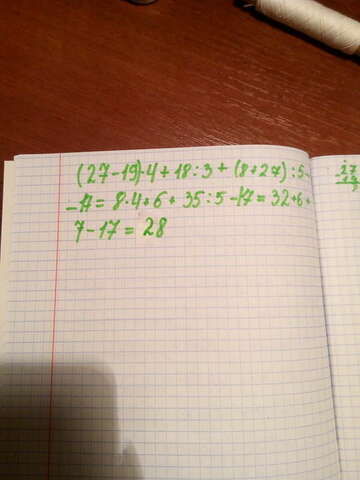 (27-19)·4+18:3+(8+27):5-
-17=8·4+6+35:5-17=32+6+
7-17=28
27